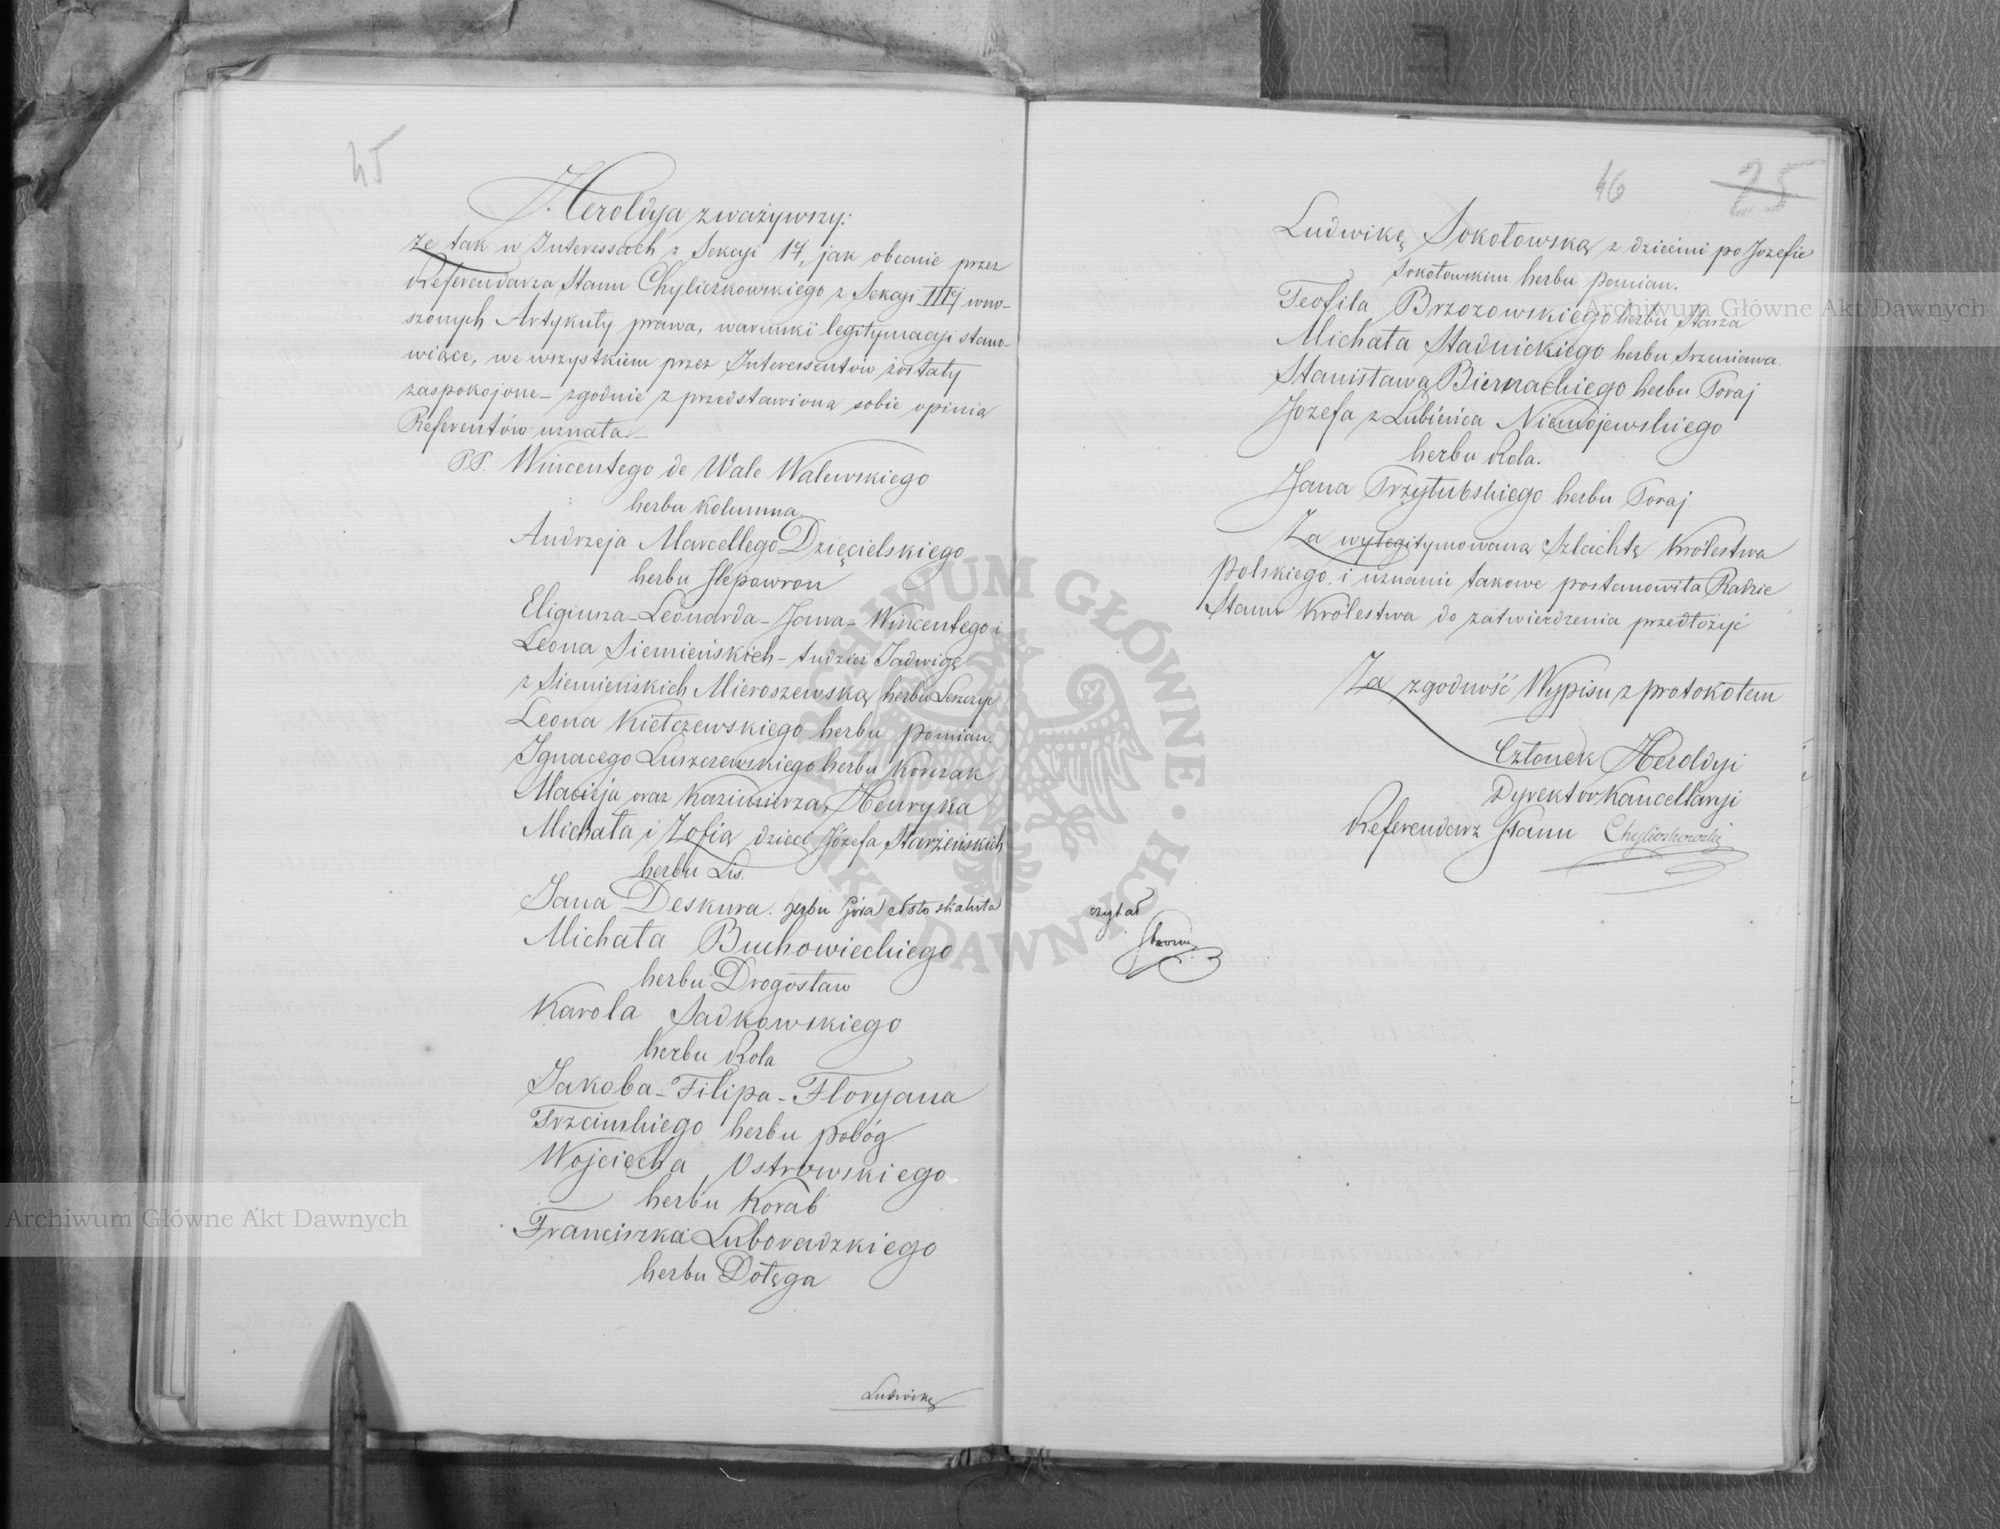 45
Heroldya zważywszy:
że tak w Interessach z Sekcyi 1ej, jak obecnie przez
Referendarza Stanu Chyliczkowskiego z Sekcyi IIIej wno-
szonych Artykuły prawa, warunki legitymacyi stano-
wiące, we wszystkiem przez Interessentów zostały
zaspokojone – zgodnie z przedstawioną sobie opinią
Referentów uznała –
PP. Wincentego de Wale Walewskiego
herbu Kolumna
Andrzeja Marcellego Dzięcielskiego
herbu Slepowron
Eligiusza – Leonarda – Jana – Wincentego i
Leona Siemieńskich – tudzież Jadwigę
z Siemieńskich Mieroszewską herbu Leszczyc
Leona Kiełczewskiego herbu Pomian.
Ignacego Luszczewskiego herbu Korczak
Macieja oraz Kazimierza, Henryka
Michała i Zofią dzieci Józefa Starzeńskich
herbu Lis.
Jana Deskura. herbu Góra złoto skalista
Michała Buchowieckiego
herbu Drogosław
Karola Sadkowskiego
herbu Rola
Jakóba – Filipa – Floryana
Trzcinskiego herbu Pobóg
Wojciecha Ostrowskiego
herbu Korab
Franciszka Luboradzkiego
herbu Dołęga
Ludwikę
46 25
Ludwikę Sokołowską z dziećmi po Jozefie
Sokołowskim herbu Pomian.
Teofila Brzozowskiego herbu Starza
Michała Stadnickiego herbu Srzeniawa.
Stanisława Biernackiego herbu Poraj
Jozefa z Lubieńca Niemojewskiego
herbu Rola.
Jana Przyłubskiego herbu Poraj
Za wylegitymowaną Szlachtę Królestwa
Polskiego, i uznanie takowe postanowiła Radzie
Stanu Królestwa do zatwierdzenia przedłożyć
Za zgodność Wypisu z protokołem
Członek Heroldyi
Dyrektor Kancellaryi
Referendarz Stanu Chyliczkowski
czytał
Archiwum Główne Akt Dawnych
Archiwum Główne Akt Dawnych
ARCHIWUM GŁÓWNE AKT DAWNYCH